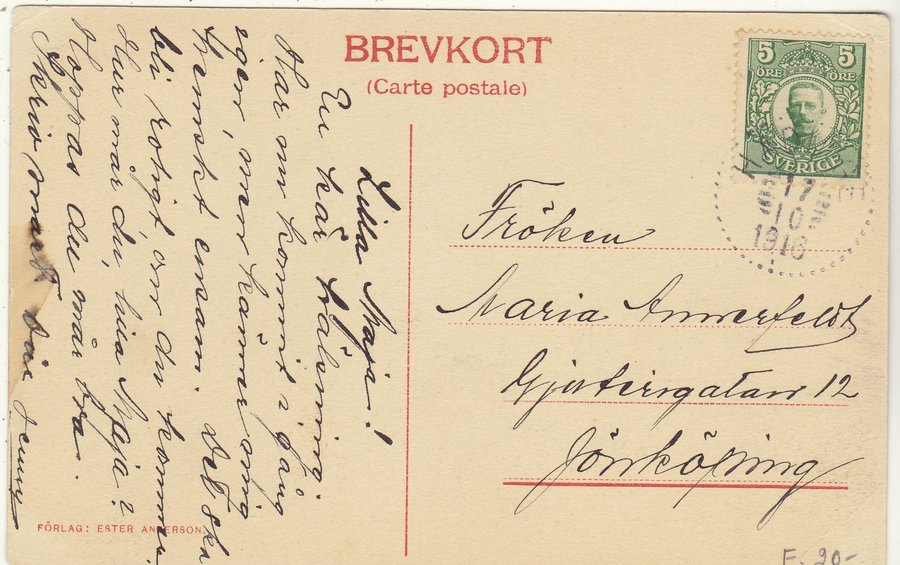 BREVKORT
(Carte postale)
5 5
ÖRE ÖRE
SVERIGE
17
10
1916
Lilla Maja!
En kär hälsning.
Har nu kommit i gång
igen, men känner mig
hemskt ensam. Det skall
bli roligt, om du kommer.
Hur mår du, lilla Maja?
Hoppas du mår bra.
Skriv snart din Jenny
Fröken
Maria Annerfeldt
Gjuterigatan 12
Jönköping
FÖRLAG: ESTER ANDERSON
F. 20-